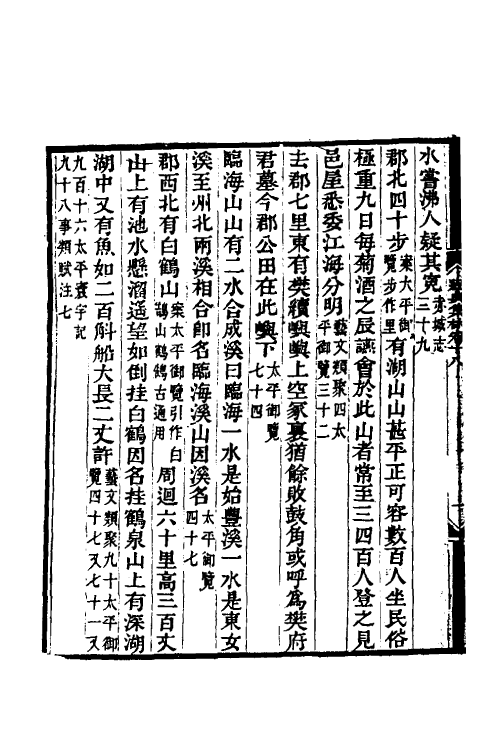 水嘗沸人疑其寃赤城志三十九
郡北四十步案太平御覽步作里有湖山山甚平正可容數百人坐民俗
極重九日每菊酒之辰讌會於此山者常至三四百人登之見
邑屋悉委江海分明藝文類聚四太平御覽三十二
去郡七里東有樊續㠘㠘上空冢裏猶餘敗鼓角或呼爲樊府
君墓今郡公田在此㠘下太平御覽七十四
臨海山山有二水合成溪曰臨海一水是始豐溪一水是東女
溪至州北兩溪相合即名臨海溪山因溪名太平御覽四十七
郡西北有白鶴山案太平御覽引作白鵠山鶴鵠古通用周迴六十里高三百丈
山上有池水懸溜遥望如倒挂白鶴因名挂鶴泉山上有深湖
湖中又有魚如二百斛船大長二丈許藝文類聚九十太平御覽四十七又七十一又
九百十六太平寰宇記九十八事類賦注七